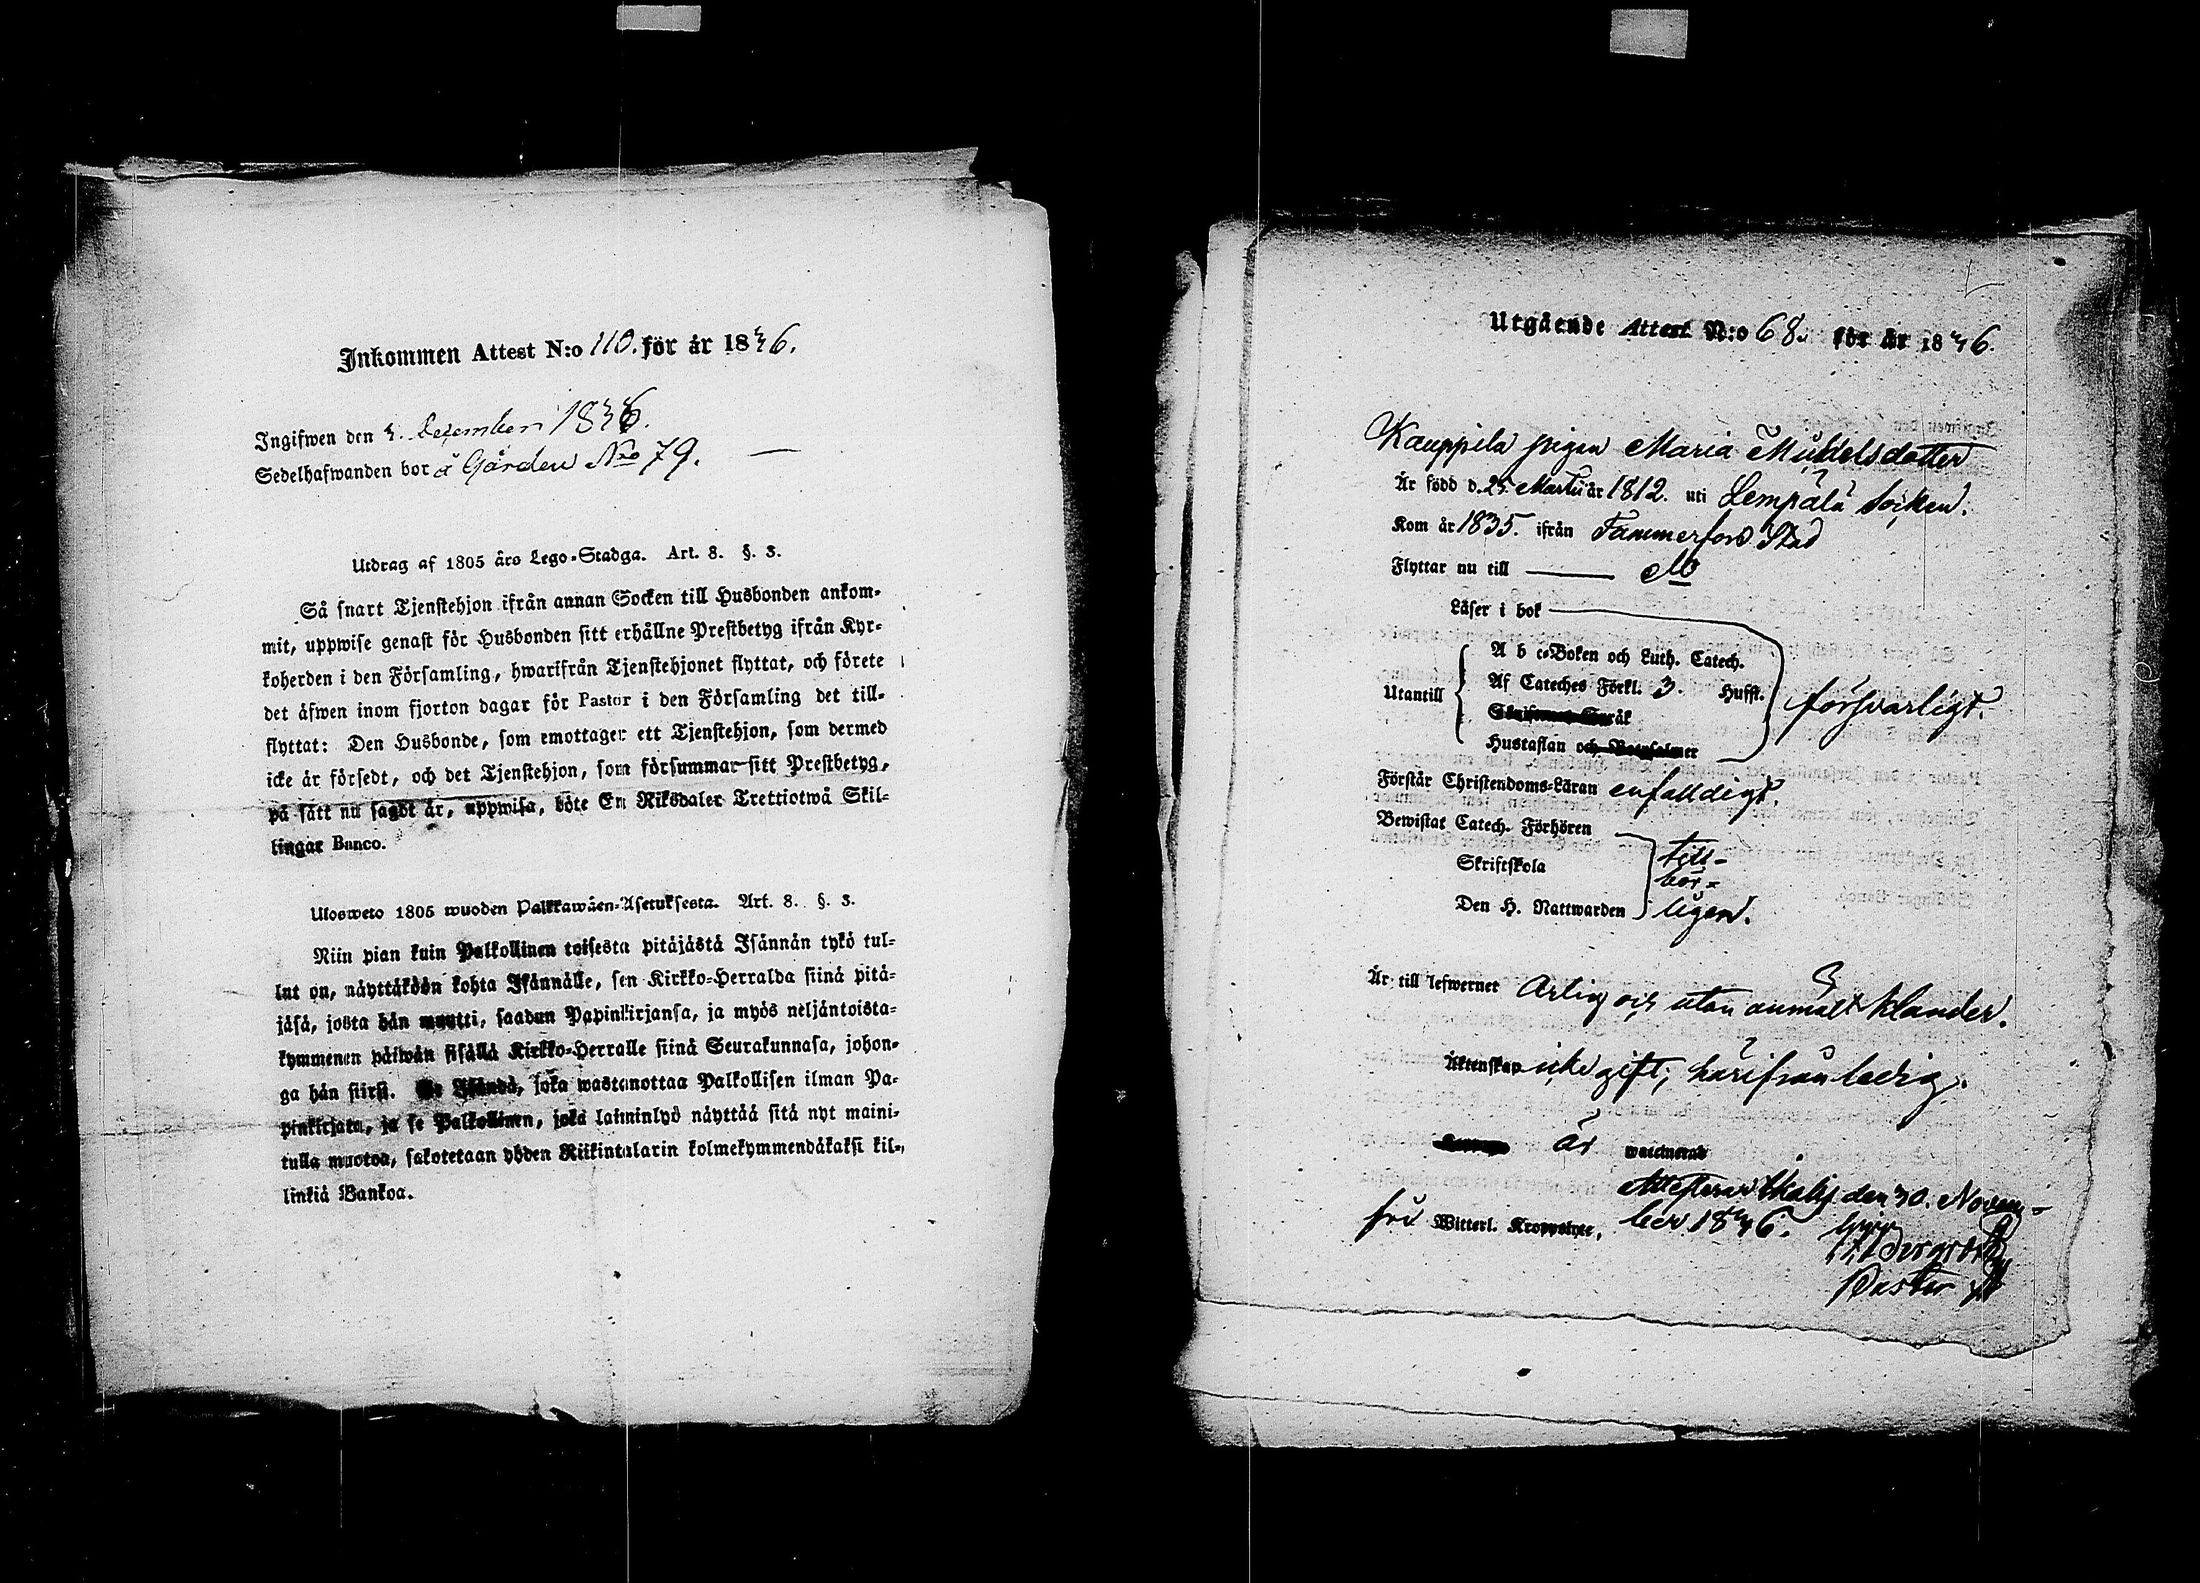 Inkommen Attest N:o 110. för år 1836.
Ingifwen den 3. December 1836.
Sedelhafwanden bor å Gården No 79.
Utdrag af 1805 års Lego-Stadga. Art. 8. §. 3.
Så snart Tjenstehjon ifrån annan Socken till Husbonden ankom-
mit, uppwise genast för Husbonden sitt erhållne Prestbetyg ifrån Kyr-
koherden i den Församling, hwarifrån Tjenstehjonet flyttat, och förete
det äfwen inom fjorton dagar för Pastor i den Församling det till-
flyttat: Den Husbonde, som emottager ett Tjenstehjon, som dermed
icke är försedt, och det Tjenstehjon, som försummar sitt Prestbetyg,
på sätt nu sagdt är, uppwisa, böte En Riksdaler Trettiotwå Skil-
lingar Banco.
Ulosweto 1805 wuoden Palkkawäen-Asetuksesta. Art. 8. §. 3.
Niin pian kuin Palkollinen toisesta pitäjästä Isännän tykö tul-
lut on, näyttäköön kohta Isännälle, sen Kirkko-Herralda siinä pitä-
jäsä, josta hän muutti, saadun Papinkirjansa, ja myös neljäntoista-
kymmenen päiwän sisällä Kirkko-Herralle siinä Seurakunnasa, johon-
ga hän siirsi. Se Isändä, joka wastanottaa Palkollisen ilman Pa-
pinkirjata, ja se Palkollinen, joka laiminlyö näyttää sitä nyt maini-
tulla muotoa, sakotetaan yhden Riikintalarin kolmekymmendäkaksi kil-
linkiä Bankoa.
Utgående Attest N:o 68. för år 1836.
Kauppila pigan Maria Michelsdotter
Är född d. 25 Martii år 1812. uti Lempälä Socken.
Kom år 1835. ifrån Tammerfors Stad
Flyttar nu till
Läser i bok
Utantill
A b c-Boken och Luth. Catech.
Af Cateches Förkl. 3. Hufst.
Hustaflan och
försvarligt.
Förstår Christendoms-Läran enfalldigt.
Bewistat Catech. Förhören
Skriftskola
Den H. Nattwarden
till-
bör-
ligen.
Är till lefwernet Ärlig och utan anmält klander.
Äktenskap icke gift, härifrån ledig.
är waccinerad
fri Witterl. Kroppslyte,
Attesterar Ikalis den 30. Novem-
ber 1836.
Pastor